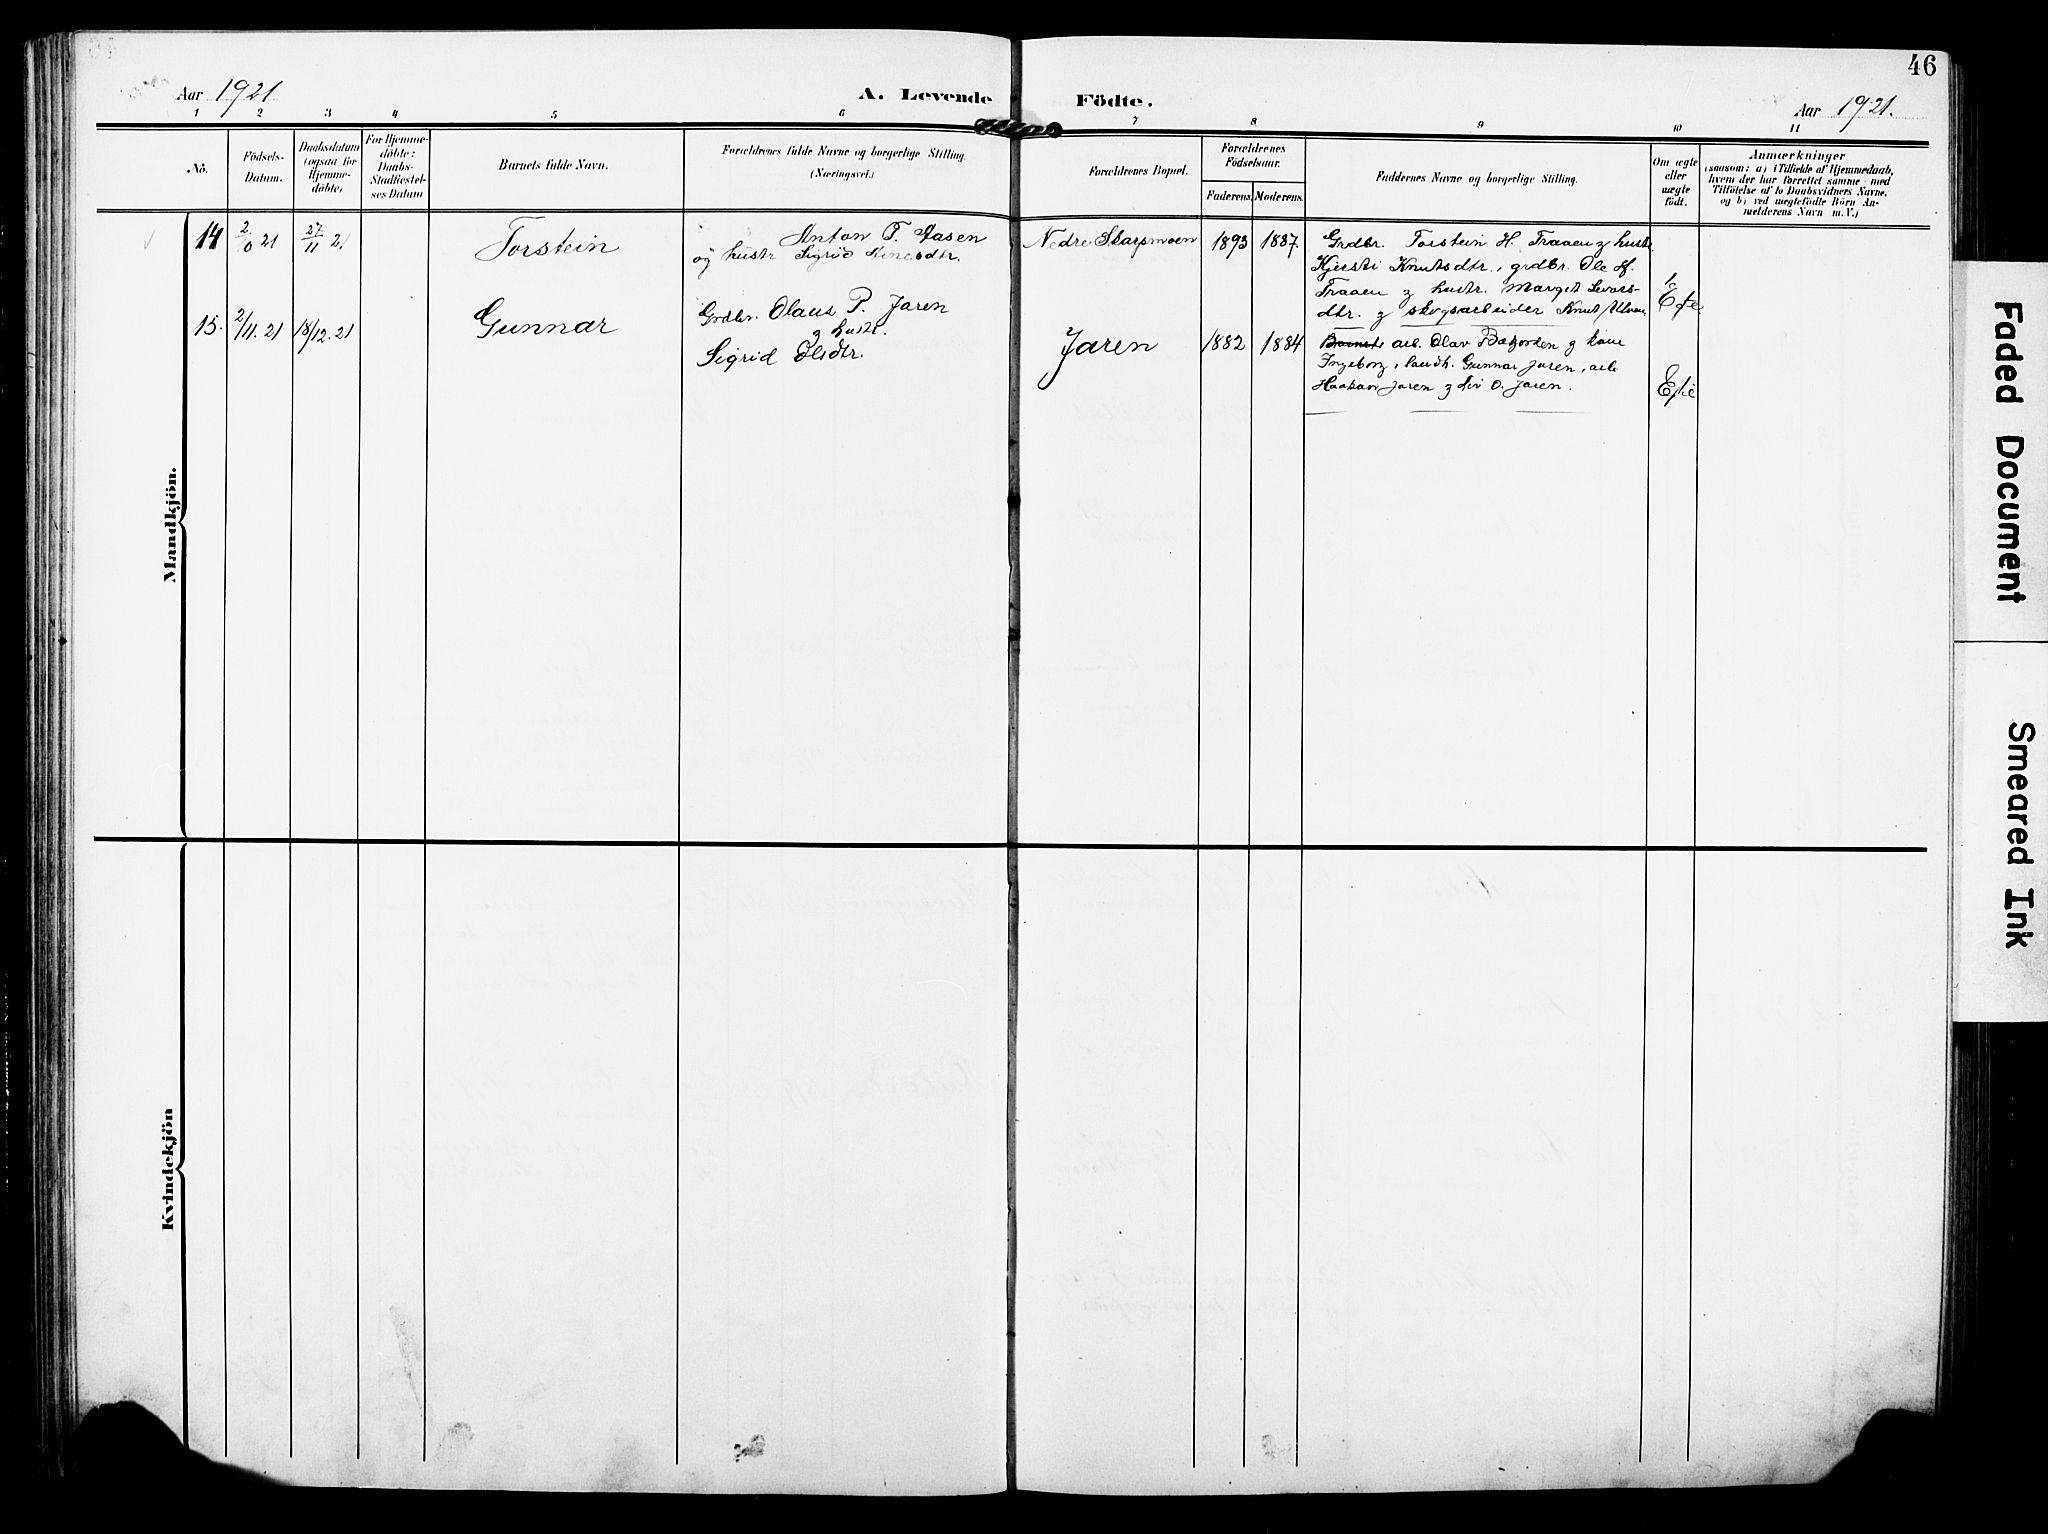 46
Aar 1921
A. Levende Födte.
Aar 1921.
1 2 3 4 5 6 7 8 9 10 11
No.
Födsels-
Datum.
Daabsdatum
(ogsaa for
Hjemme-
döbte)
For Hjemme-
döbte:
Daabs-
Stadfæstel-
ses Datum
Barnets fulde Navn.
Forældrenes fulde Navne og borgerlige Stilling.
(Næringsvei.)
Forældrenes Bopæl.
Forældrenes
Födselsaar.
Faderens. Moderens.
Faddernes Navne og borgerlige Stilling.
Om ægte
eller
uægte
födt.
Anmærkninger
(saasom: a) i Tilfælde af Hjemmedaab,
hvem der har forrettet samme med
Tilföielse af to Daabsvidners Navne,
og b) ved uægtefödte Börn An-
melderens Navn m. V.)
Mandkjön.
14 2/0 21 27/11 21 Torstein
Anton T. Aasen
og hustr Sigrid
Nedre Skarpsmoen 1893 1887.
Grdbr. Torstein H. Traaen & hustr.
Kjersti Knutsdtr., grdbr. Ole H.
Traaen & hustr. Marget Sevars-
dtr. & skogsarbeider Knut
Egte
15. 2/11. 21 18/12. 21 Gunnar
Grdbr. Olaus P. Jaren
& hustr.
Sigrid Olsdtr.
Jaren 1882 1884
arb. Olav & kone
Ingeborg, landh. Gunnar Jaren, arb
Haakan Jaren & Liv O. Jaren.
Egte
Kvindekjön
Faded Document
Smeared Ink